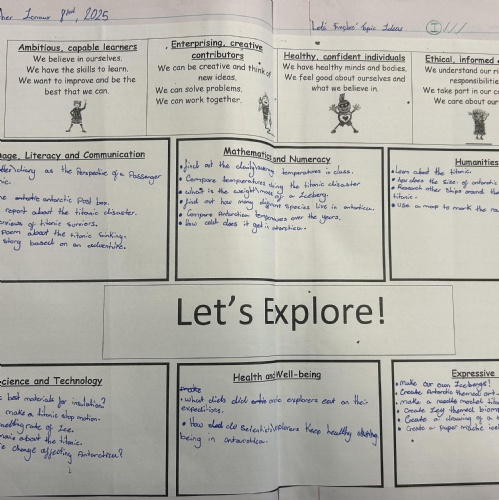 2025
Let's Explore Topic Ideas
Ambitious, capable learners
We believe in ourselves.
We have the skills to learn.
We want to improve and be the
best that we can.
Enterprising, creative
contributors
We can be creative and think of
new ideas.
We can solve problems.
We can work together.
Healthy, confident individuals
We have healthy minds and bodies.
We feel good about ourselves and
what we believe in.
Ethical, informed
We understand our ri
responsibilitie
We take part in our c
We care about our
age, Literacy and Communication
diary as the perspective of a Passenger
antarctic Post box.
report about the titanic disaster.
Poem about the titanic sinking.
story based on an adventure.
Mathematics and Numeracy
• find out the temperatures in class.
• Compare temperatures during the titanic disaster
• what is the weight/mass of a Iceberg.
• find out how many different species live in antartica.
• Compare Antarctica temperatures over the years.
• How cold does it get in antarctica.
Humanities
• Learn about the titanic.
• how does the size of antarctic
• Research other ships around the
titanic.
• Use a map to mark the
Let's Explore!
cience and Technology
best materials for insulation?
make a titanic stop motion.
melting rate of Ice.
about the titanic.
change affecting Antarctica?
Health and Well-being
make
• what diets did antarctic explorers eat on their
expeditions.
• How did do Scientists/explorers keep healthy during
being in antarctica.
Expressive
• make our own Icebergs!
• Create Antarctic themed art
• make a model titan
• Create Icey themed
• Create a drawing of a
• Create a paper mache